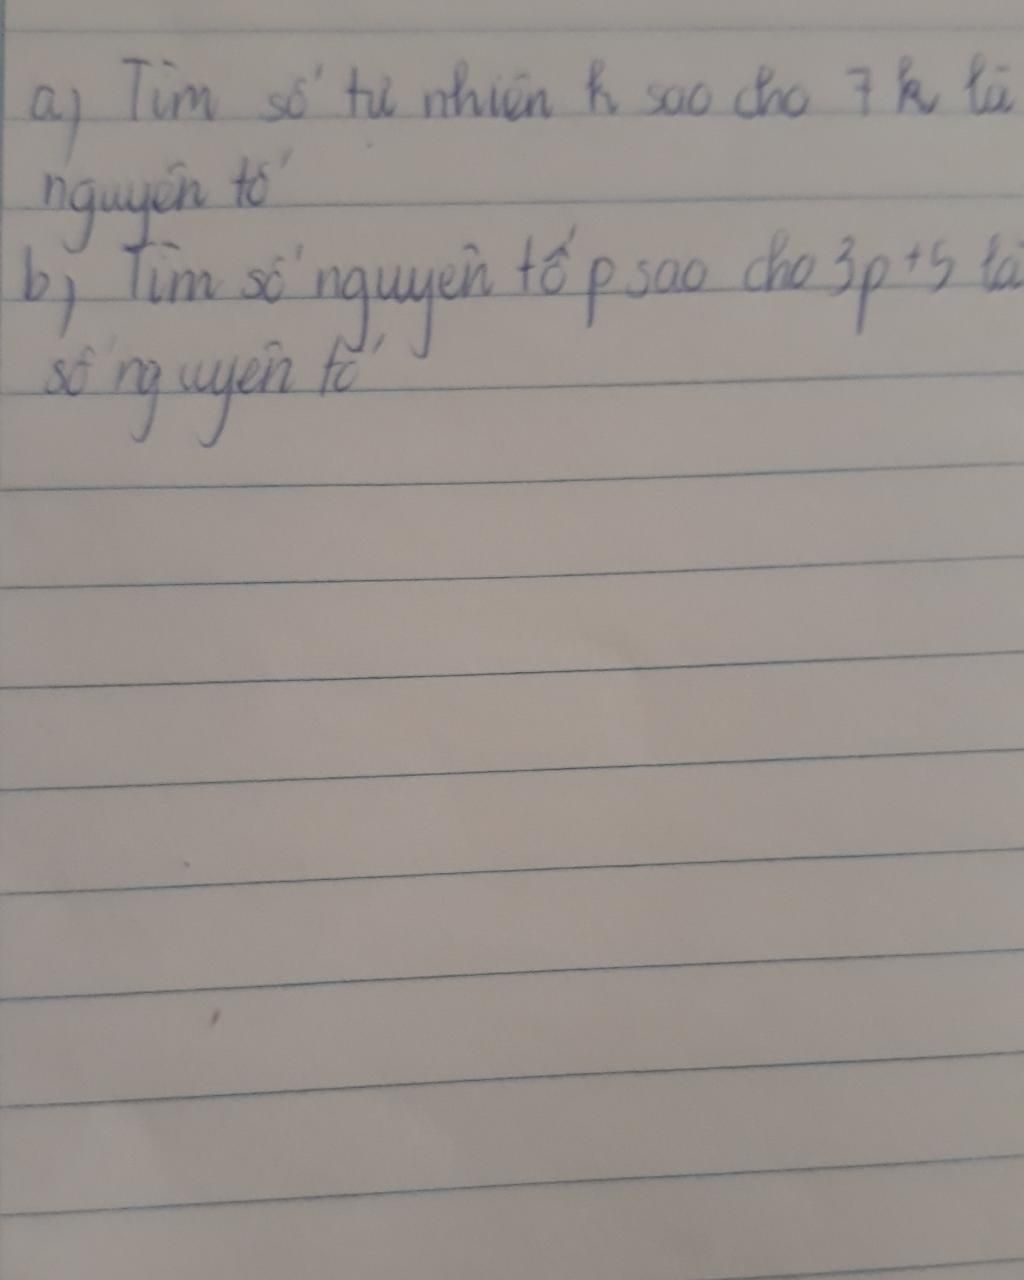 a) Tìm số tự nhiên k sao cho 7k là
nguyên tố
b) Tìm số nguyên tố p sao cho 3p+5 là
số nguyên tố